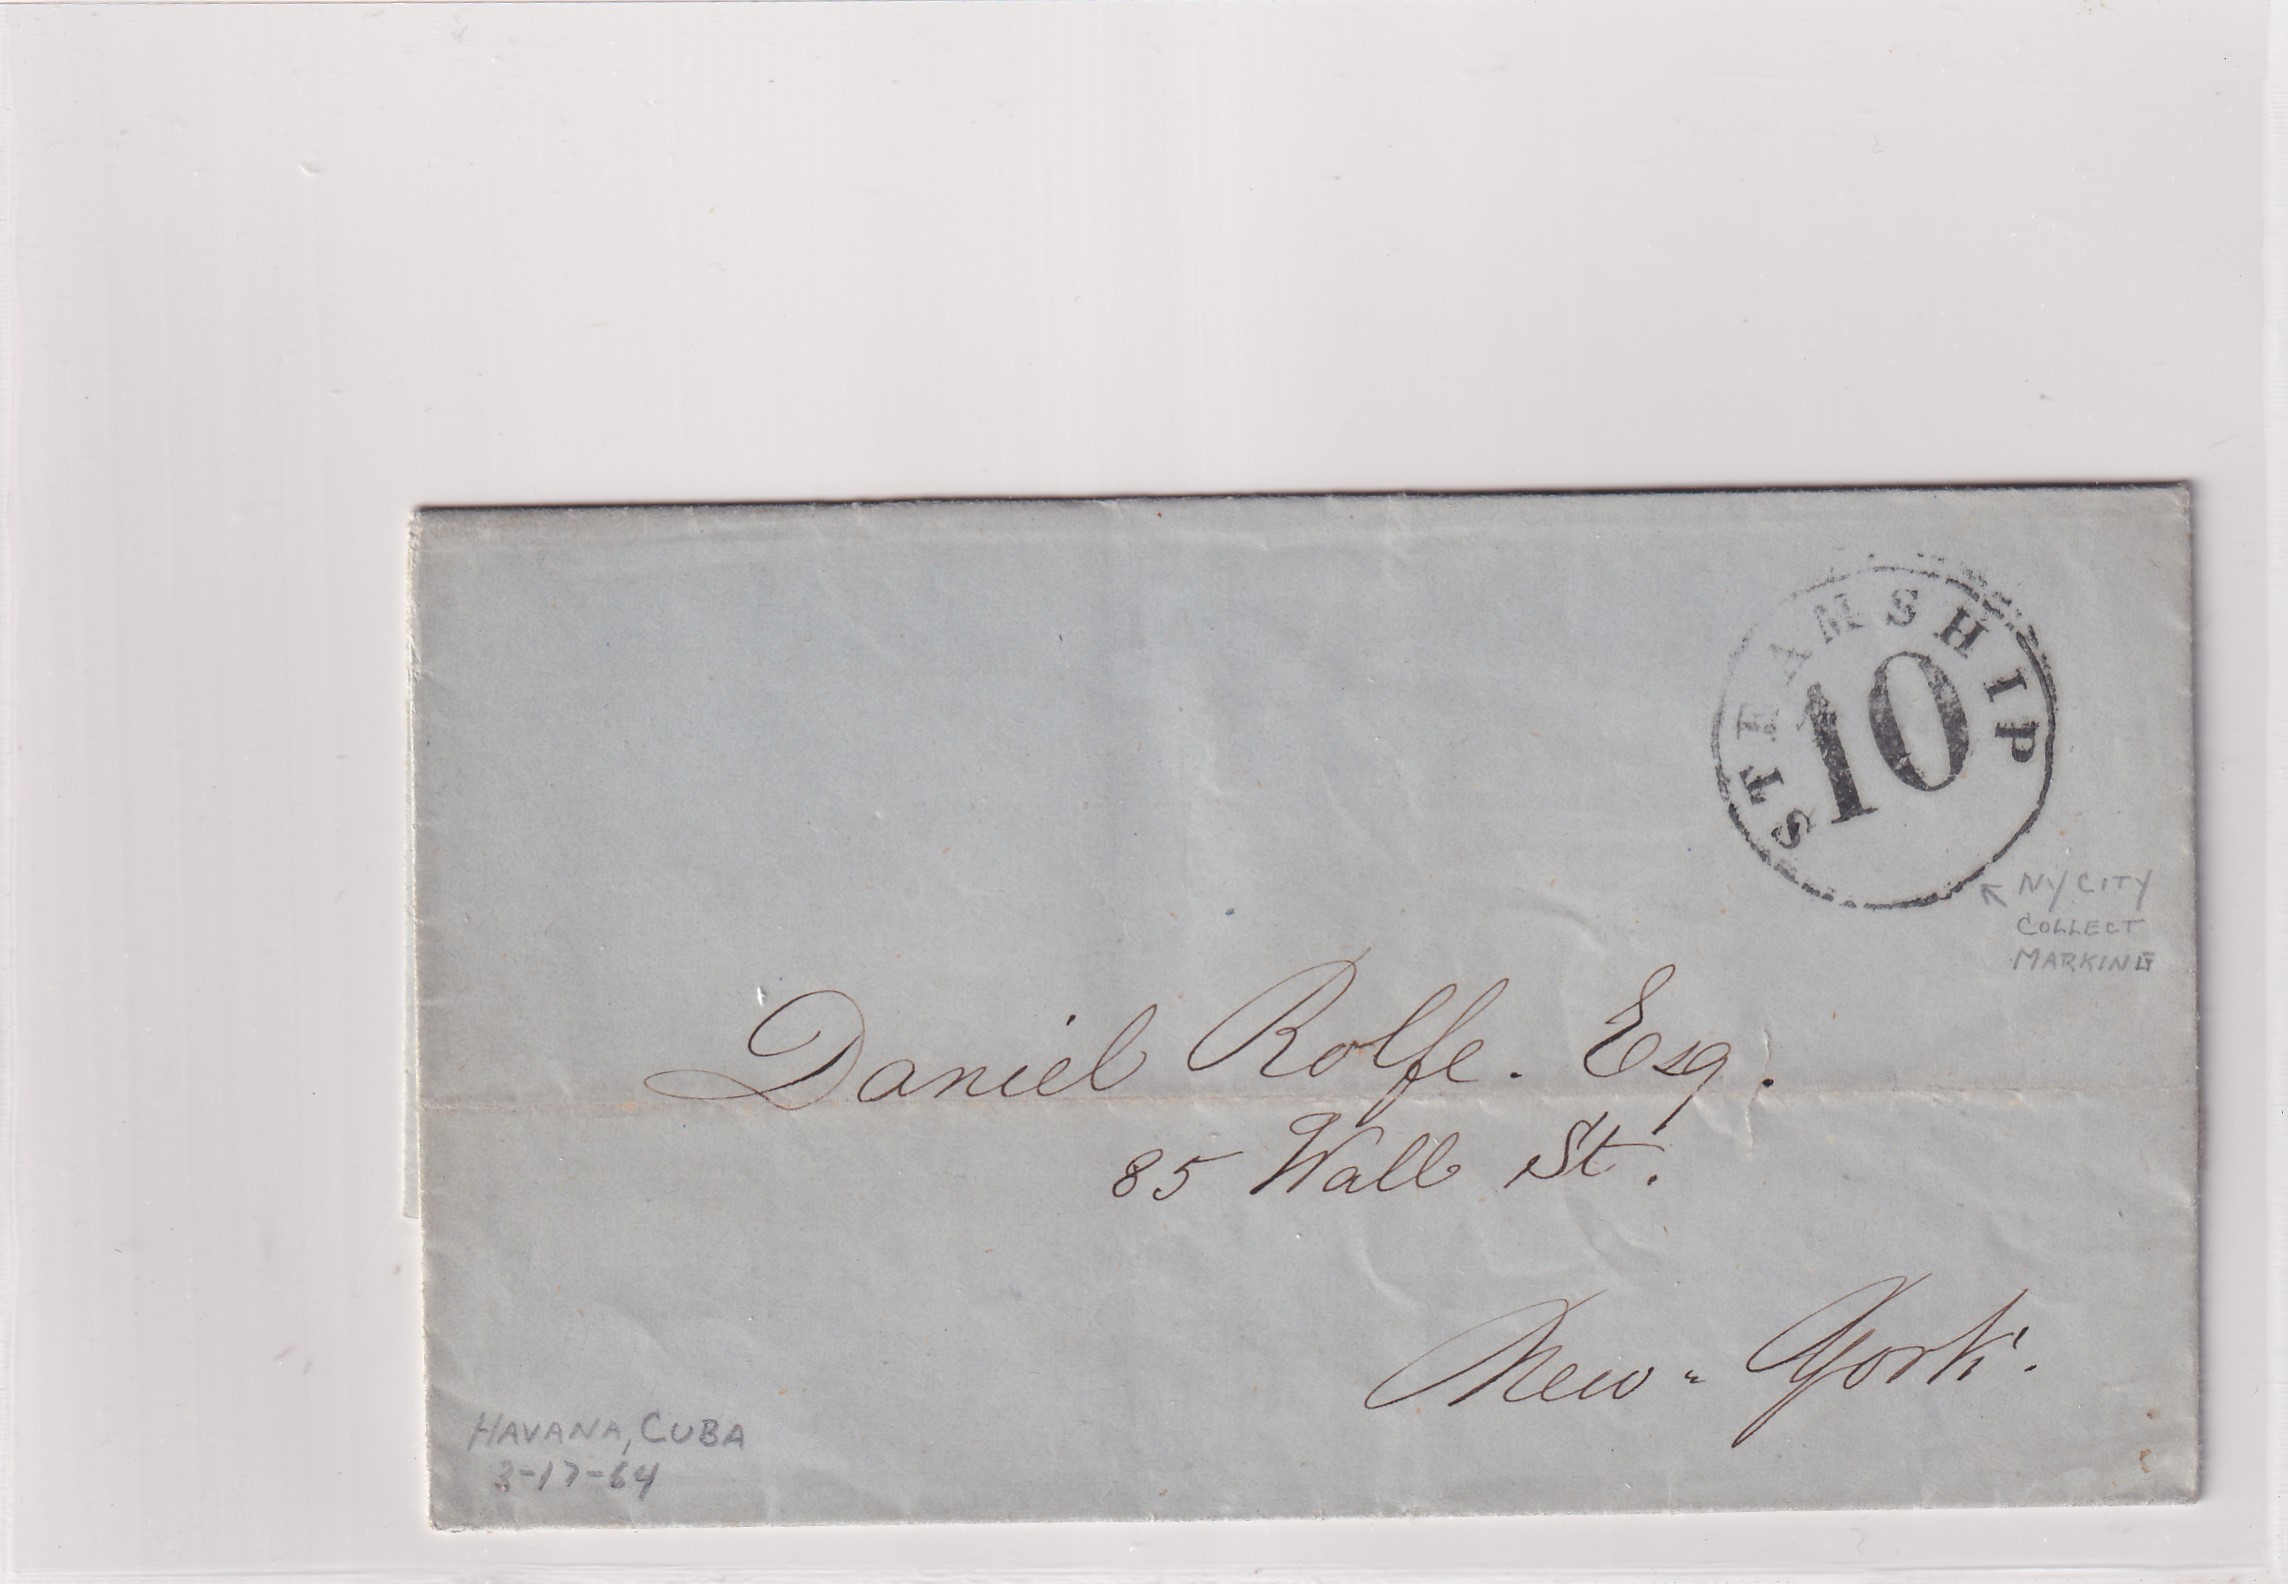 STEAMSHIP
10
NY CITY
COLLECT
MARKING
Daniel Rolfe. Esq.
85 Wall St.
New-York.
HAVANA, CUBA
3-17-64